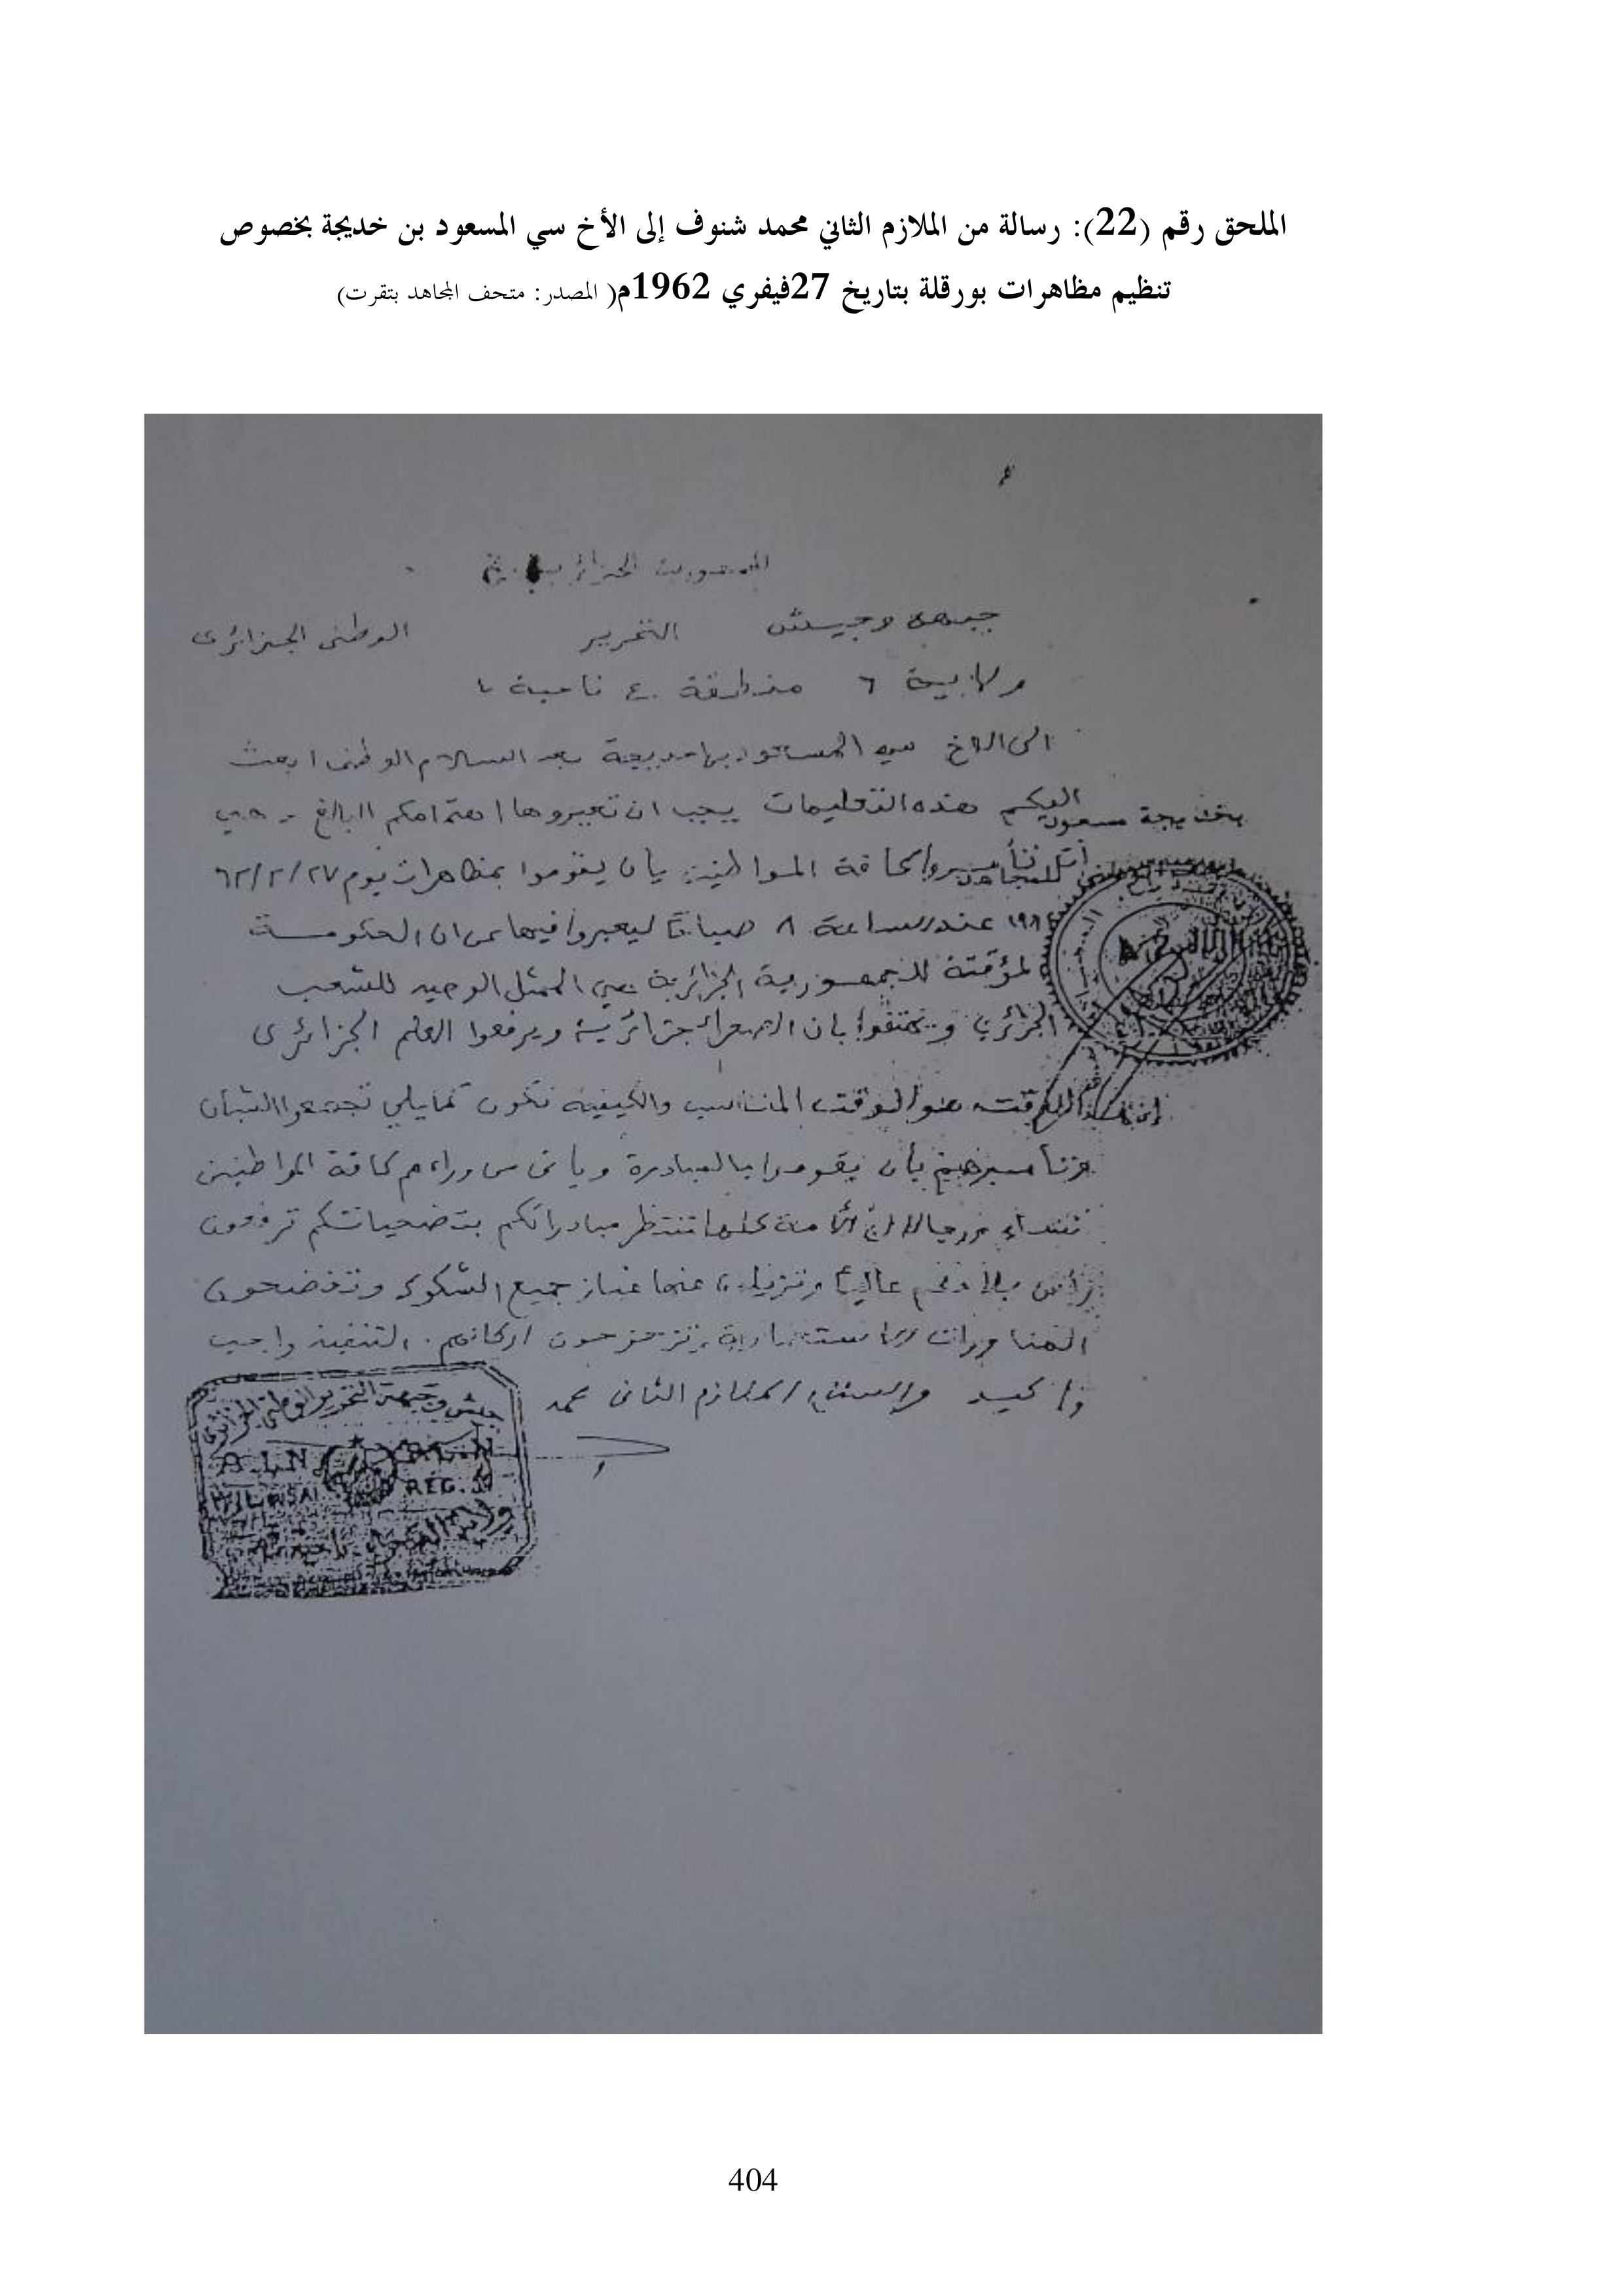 الملحق رقم (22): رسالة من الملازم الثاني محمد شنوف إلى الأخ سي المسعود بن خديجة بخصوص
تنظيم مظاهرات بورقلة بتاريخ 27فيفري 1962م( المصدر: متحف المجاهد بتقرت)
الجمهورية الجزائرية
جبهة وجيش التحرير الوطنى الجزائرى
ولاية ٦ منطقة ٤ ناحية
الى الاخ سي المسعود بن خديجة بعد السلام الوطنى ابعث
اليكم هذه التعليمات يجب ان تعيروها اهتمامكم البالغ - هي
بن خديجة مسعود
كافة المواطنين بأن يقوموا بمظاهرات يوم ٦٢/٢/٢٧
عند الساعة ٨ صباحا ليعبروا فيها عن ان الحكومة
لمؤقتة للجمهورية الجزائرية هي الممثل الوحيد للشعب
الجزائري و يهتفوا بان الصحراء جزائرية ويرفعوا العلم الجزائرى
هو الوقت المناسب والكيفية تكون كمايلي تجمعوا الشبان
بأن يقوموا بالمبادرة ويأتى من وراءهم كافة المواطنين
الأمة كلها تنتظر مبادراتكم بتضحياتكم ترفعون
رأس عاليا وتزيلون عنها غبار جميع الشكوك وتفضحون
المناورات الاستعمارية وتزحزحون اركانهم. التنفيذ واجب
واكيد والسلام الملازم الثانى محمد
جيش وجبهة التحرير الوطني الجزائري
A.L.N F.L.N
REG.
404